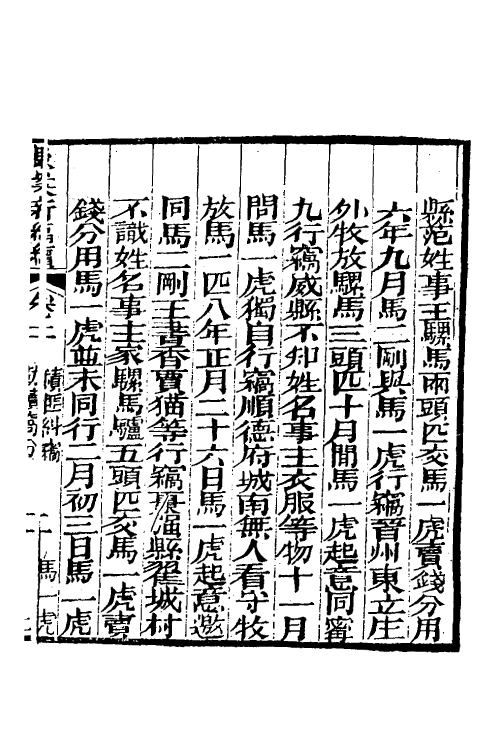 縣范姓事主騾馬兩頭匹交馬一虎賣錢分用
六年九月馬二剛與馬一虎行竊晉州東立庄
外牧放騾馬三頭匹十月間馬一虎起意同甯
九行竊威縣不知姓名事主衣服等物十一月
間馬一虎獨自行竊順德府城南無人看守牧
放馬一匹八年正月二十六日馬一虎起意邀
同馬二剛王書香賈猫等行竊縣翟城村
不識姓名事主家騾馬驢五頭匹交馬一虎賣
錢分用馬一虎並未同行二月初三日馬一虎
新編續 卷二 積匪糾竊 一 馬一虎